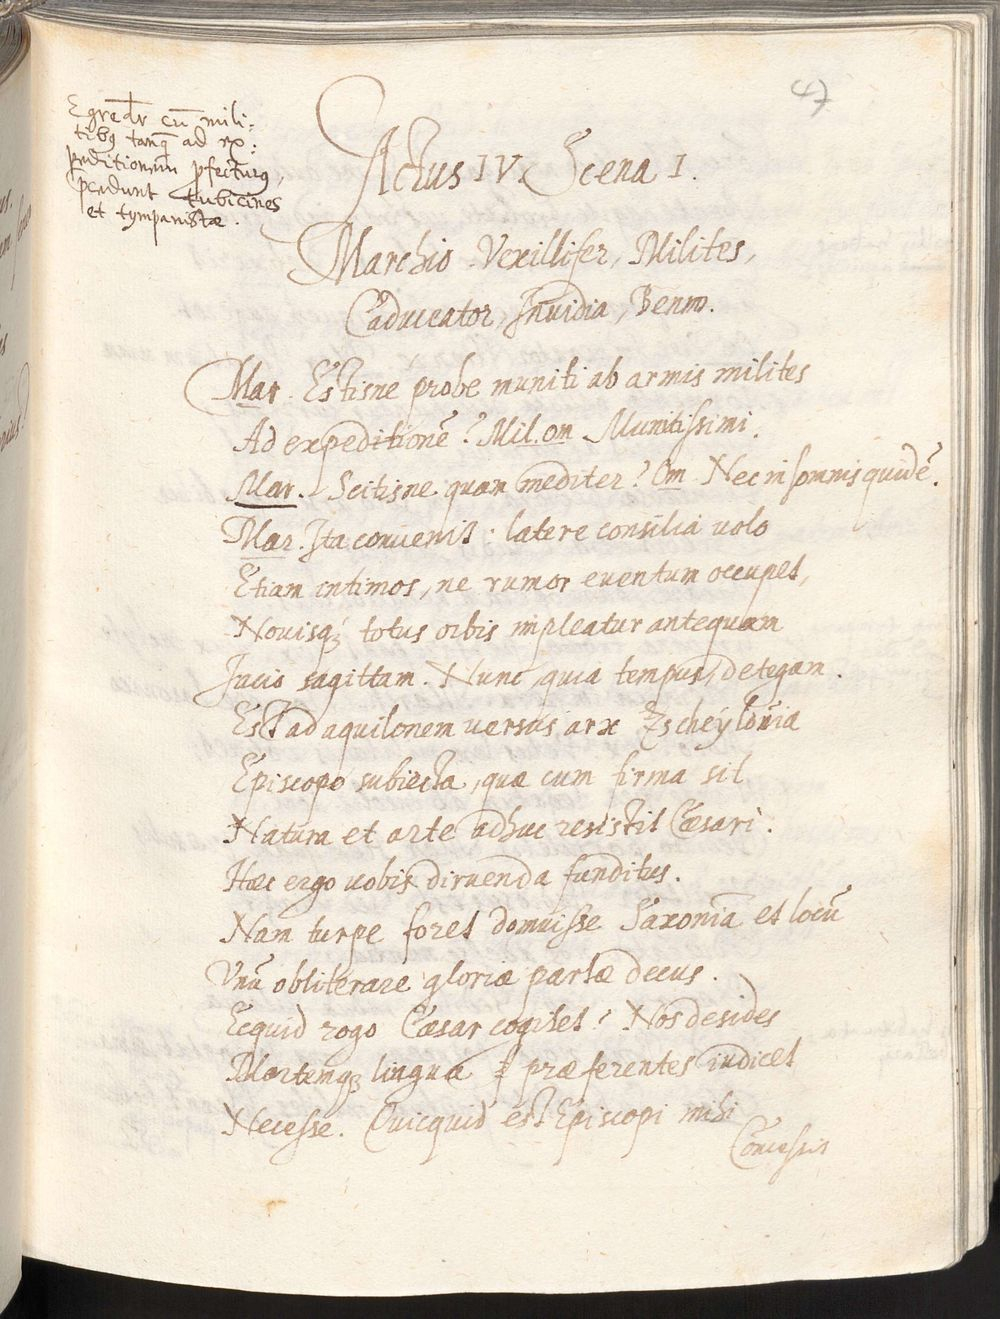 47
Egredr̄ cū mili:
tibꝯ tanꝗ ad ex:
peditionem pfecturꝯ,
pcedunt tubicines
et tympanistæ.
Actus IV. Scena I.
Marchio Vexillifer, Milites,
Caduceator, Inuidia, Benno.
Mar. Estisne probe muniti ab armis milites
Ad expeditionē? Mil. om Munitissimi.
Mar. Scitisne quam mediter? Om Nec in somnis quidē.
Mar. Ita conuenit: latere consilia uolo
Etiam intimos, ne rumor euentum occupet,
Nouisqꝫ totus orbis impleatur antequam
Jacio sagittam. Nunc, quia tempus, detegam.
Est ad aquilonem versus arx Zscheylouia
Episcopo subiecta, quæ cum firma sit
Natura et arte adhuc resistit Cæsari.
Hæc ergo uobis diruenda funditus.
Nam turpe foret domuisse Saxoniā et locū
Vnū obliterare gloriæ partæ decus.
Ecquid rogo Cæsar cogitet? Nos desides
Mortemqꝫ lingua præferentes iudicet
Necesse. Quicquid est Episcopi mihi
Concessit